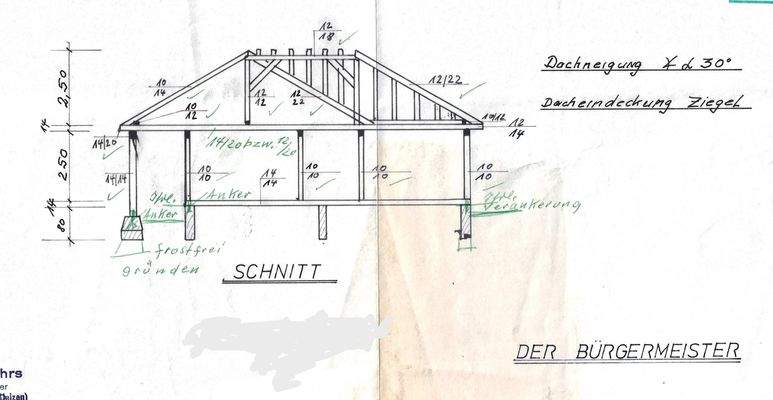 12
18
Dachneigung ∡ α 30°
10
14
12/22
2,50
12
12
12
22
Dacheindeckung Ziegel
10
12
10/12
12
14
14
14/20
14/20 bzw. 12/20
2 50
14/14
10
10
14
14
10
10
10
10
10
10
Anker
Anker
Verankerung
14
80
frostfrei
gründen
SCHNITT
DER BÜRGERMEISTER
hrs
er